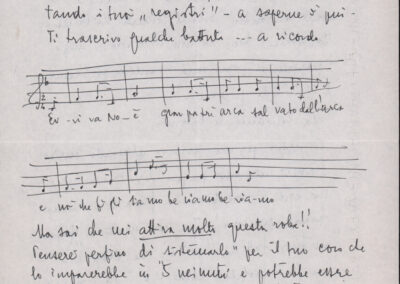 tando i tuoi "registri" - a saperne di più -
Ti trascrivo qualche battuta --- a ricordo
Ev - vi va No - è gran patri arca sal vato dall'arca
e noi che figli siamo be viamo be via-mo
Ma sai che mi attira molto questa roba!!
Penserei perfino di sistemarlo" per il tuo coro che
lo imparerebbe in "5 minuti e potrebbe essere